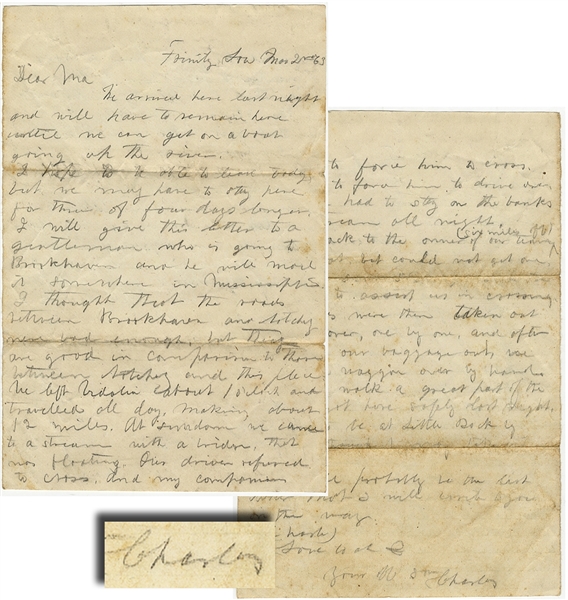 Trinity Lou Mar 2nd 63
Dear Ma
We arrived here last night
and will have to remain here
until we can get on a boat
going up the river.
I hope to be able to leave today
but we may have to stay here
for three, of four days longer.
I will give this letter to a
gentleman who is going to
Brookhaven and he will mail
it somewhere in Mississippi
I thought that the roads
between Brookhaven and Natchez
were bad enough, but they
are good in comparison to those
between Natchez and this place
We left Vidalia about 1 o'clock and
travelled all day, making about
12 miles. At sundown we came
to a stream with a bridge, that
was floating. Our driver refused
to cross, and my companions
to force him to cross.
to force him, to drive over
had to stay on the banks
stream all night.
(six miles off)
back to the owner of our team
but could not get one
to assist us in crossing
were then taken out
over, one by one, and after
our baggage out, we
waggon over by hand
walk a great part of the
here safely last night.
be at Little Rock by
probably be the last
letter that I will write to you
the way.
Love to all
Your
Charley
Charley